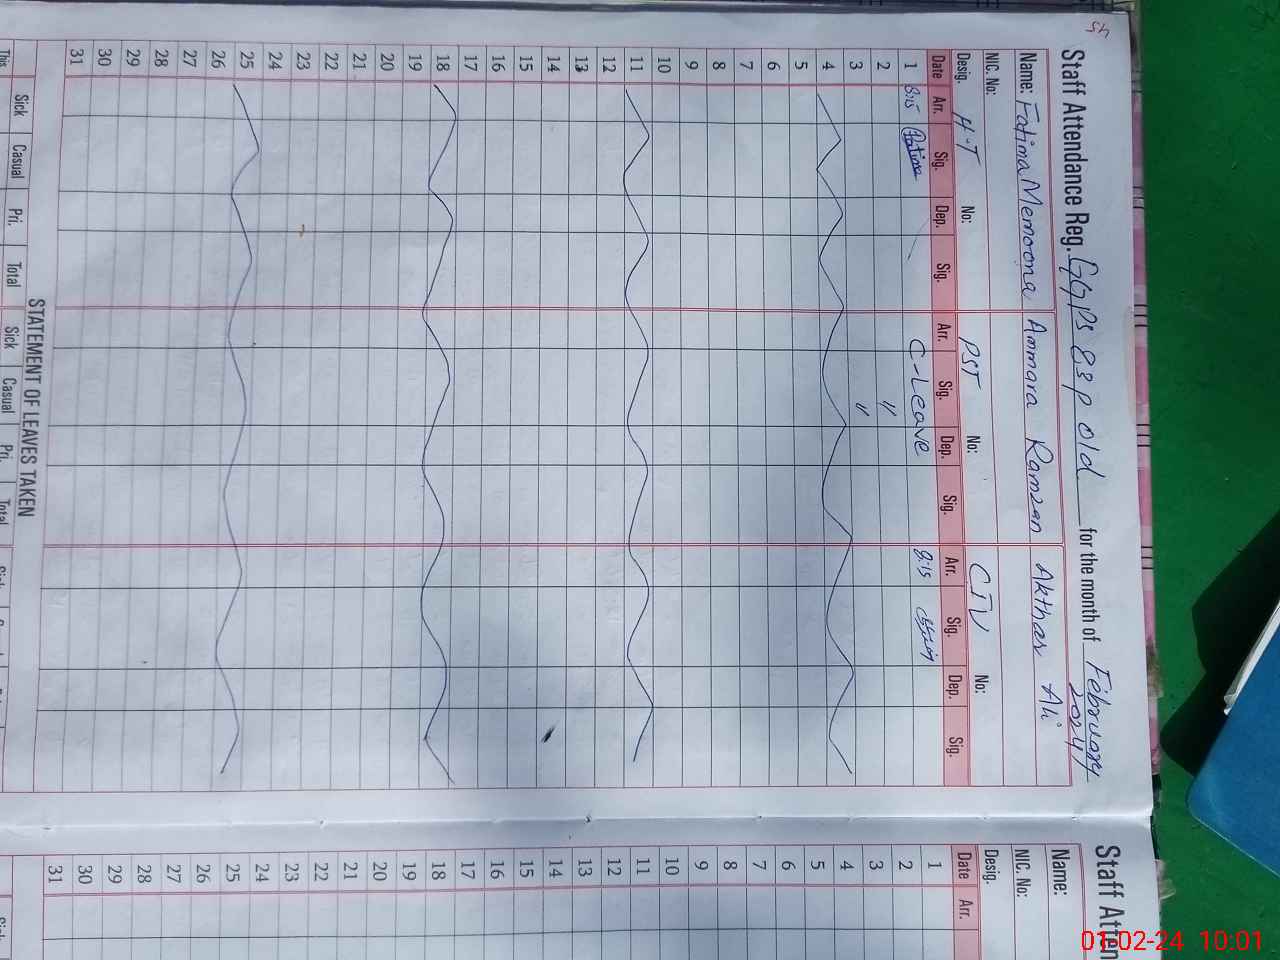 45
Staff Attendance Reg. GGPS 83 P Old for the month of February 2024
Name: Fatima Memoona Ammara Ramzan Akthar Ali
NIC. No:
Desig. H.T No: PST No: CTV No:
Date Arr. Sig. Dep. Sig. Arr. Sig. Dep. Sig. Arr. Sig. Dep. Sig.
1 8:15 Fatima C-Leave 8:15
2 "
3 "
4
5
6
7
8
9
10
11
12
13
14
15
16
17
18
19
20
21
22
23
24
25
26
27
28
29
30
31
STATEMENT OF LEAVES TAKEN
Sick Casual Pri. Total Sick Casual Pri. Total
This
Staff Atten
Name:
NIC. No:
Desig.
Date Arr.
1
2
3
4
5
6
7
8
9
10
11
12
13
14
15
16
17
18
19
20
21
22
23
24
25
26
27
28
29
30
31
01-02-24 10:01